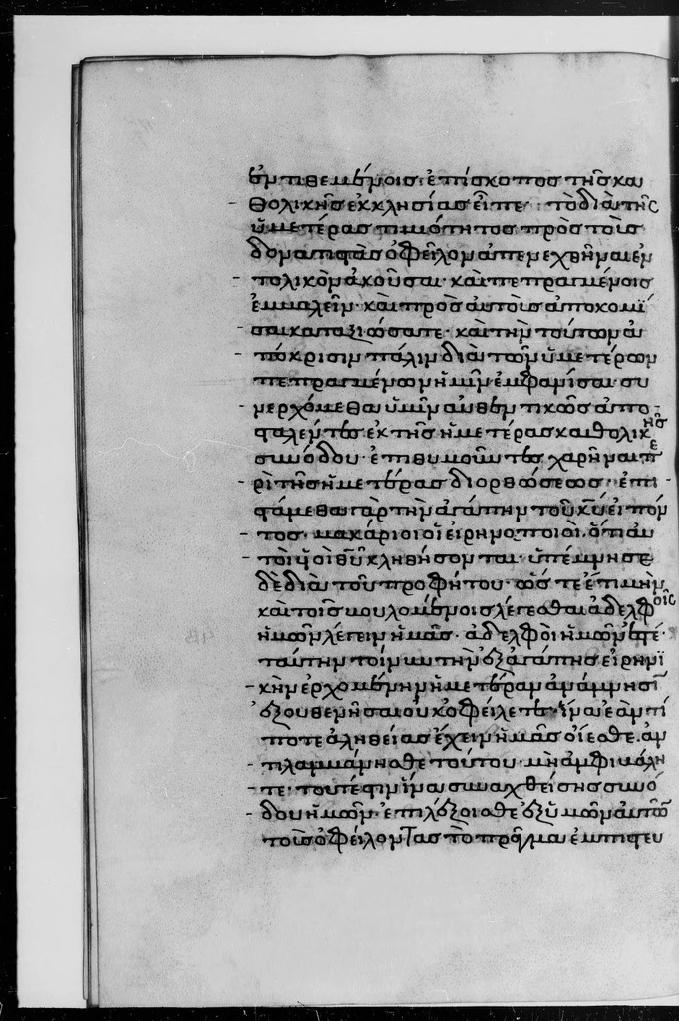 ἐντιθεμένοις· ἐπίσκοπος τῆς κα
θολικῆς ἐκκλησίας εἶπε· τὸ διὰ τῆς
ὑμετέρας τιμιότητος πρὸς τοὺς
δονατιστὰς ὀφεῖλον ἀπενεχθῆναι ἐν
τολικὸν ἀκοῦσαι· καὶ πεπραγμένοις
ἐμβαλεῖν· καὶ πρὸς αὐτοὺς ἀποκομί
σαι καταξιώσατε· καὶ τὴν τούτων ἀ
πόκρισιν πάλιν διὰ τῶν ὑμετέρων
πεπραγμένων ἡμῖν ἐμφανίσαι· συ
νερχόμεθα ὑμῖν αὐθεντικῶς ἀπο
σταλέντες ἐκ τῆς ἡμετέρας καθολικῆς
συνόδου· ἐπιθυμοῦντες χαρῆναι πε
ρὶ τῆς ἡμετέρας διορθώσεως· ἐπι
στάμεθα γὰρ τὴν ἀγάπην τοῦ κυ εἰπόν
τος· μακάριοι οἱ εἰρηνοποιοὶ· ὅτι αὐ
τοὶ υἱοὶ θυ κληθήσονται· ὑπέμνησε
δὲ διὰ τοῦ προφήτου· ὥστε ἔτι μὴν
καὶ τοῖς βουλομένοις λέγεσθαι ἀδελφοῖς
ἡμῶν λέγειν ἡμᾶς· ἀδελφοὶ ἡμῶν ἐστέ·
ταύτην τοίνυν τὴν ἐξ ἀγάπης εἰρηνι
κὴν ἐρχομένην ἡμετέραν ἀνάμνησι
ἐξουθενῆσαι οὐκ ὀφείλετε· ἵνα ἐὰν τί
ποτε ἀληθείας ἔχειν ἡμᾶς οἴεσθε· ἀν
τιλαμβάνησθε τούτου· μὴ ἀμφιβάλη
τε· τουτέστιν ἵνα συναχθείσης συνό
δου ἡμῶν· ἐπιλέξοισθε ἐξ ὑμῶν αὐτῶ
τοὺς ὀφείλοντας τὸ πρᾶγμα ἐμπιστευ